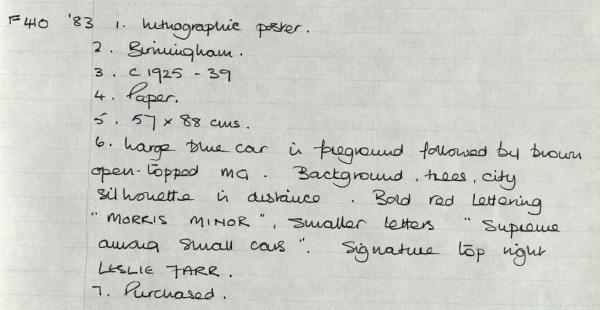 F410 '83 1. Lithographic poster.
2. Birmingham.
3. C 1925 - 39
4. Paper.
5. 57 x 88 cms.
6. Large blue car in foreground followed by brown
open-topped MG. Background, trees, city
silhouette in distance. Bold red lettering
"MORRIS MINOR", smaller letters "Supreme
among small cars". Signature top right
LESLIE FARR.
7. Purchased.